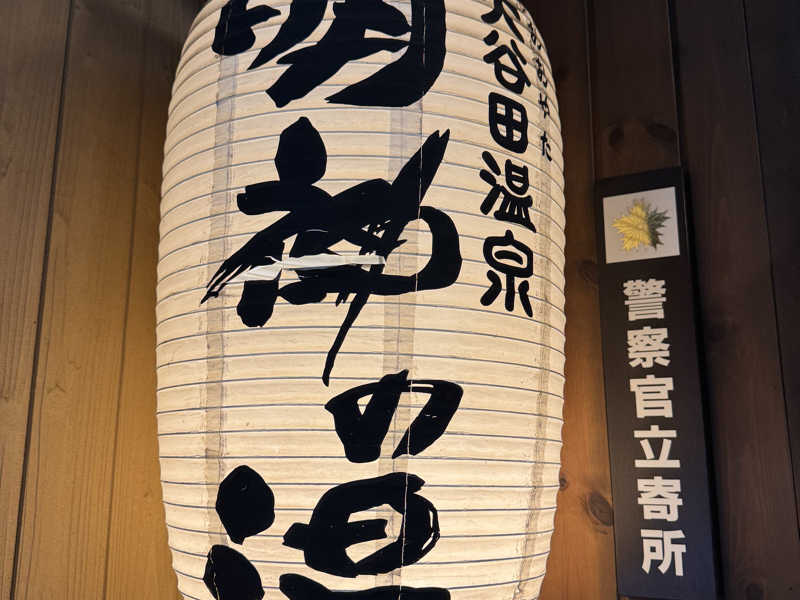 明神の温
大谷田温泉
おおやた
警察官立寄所